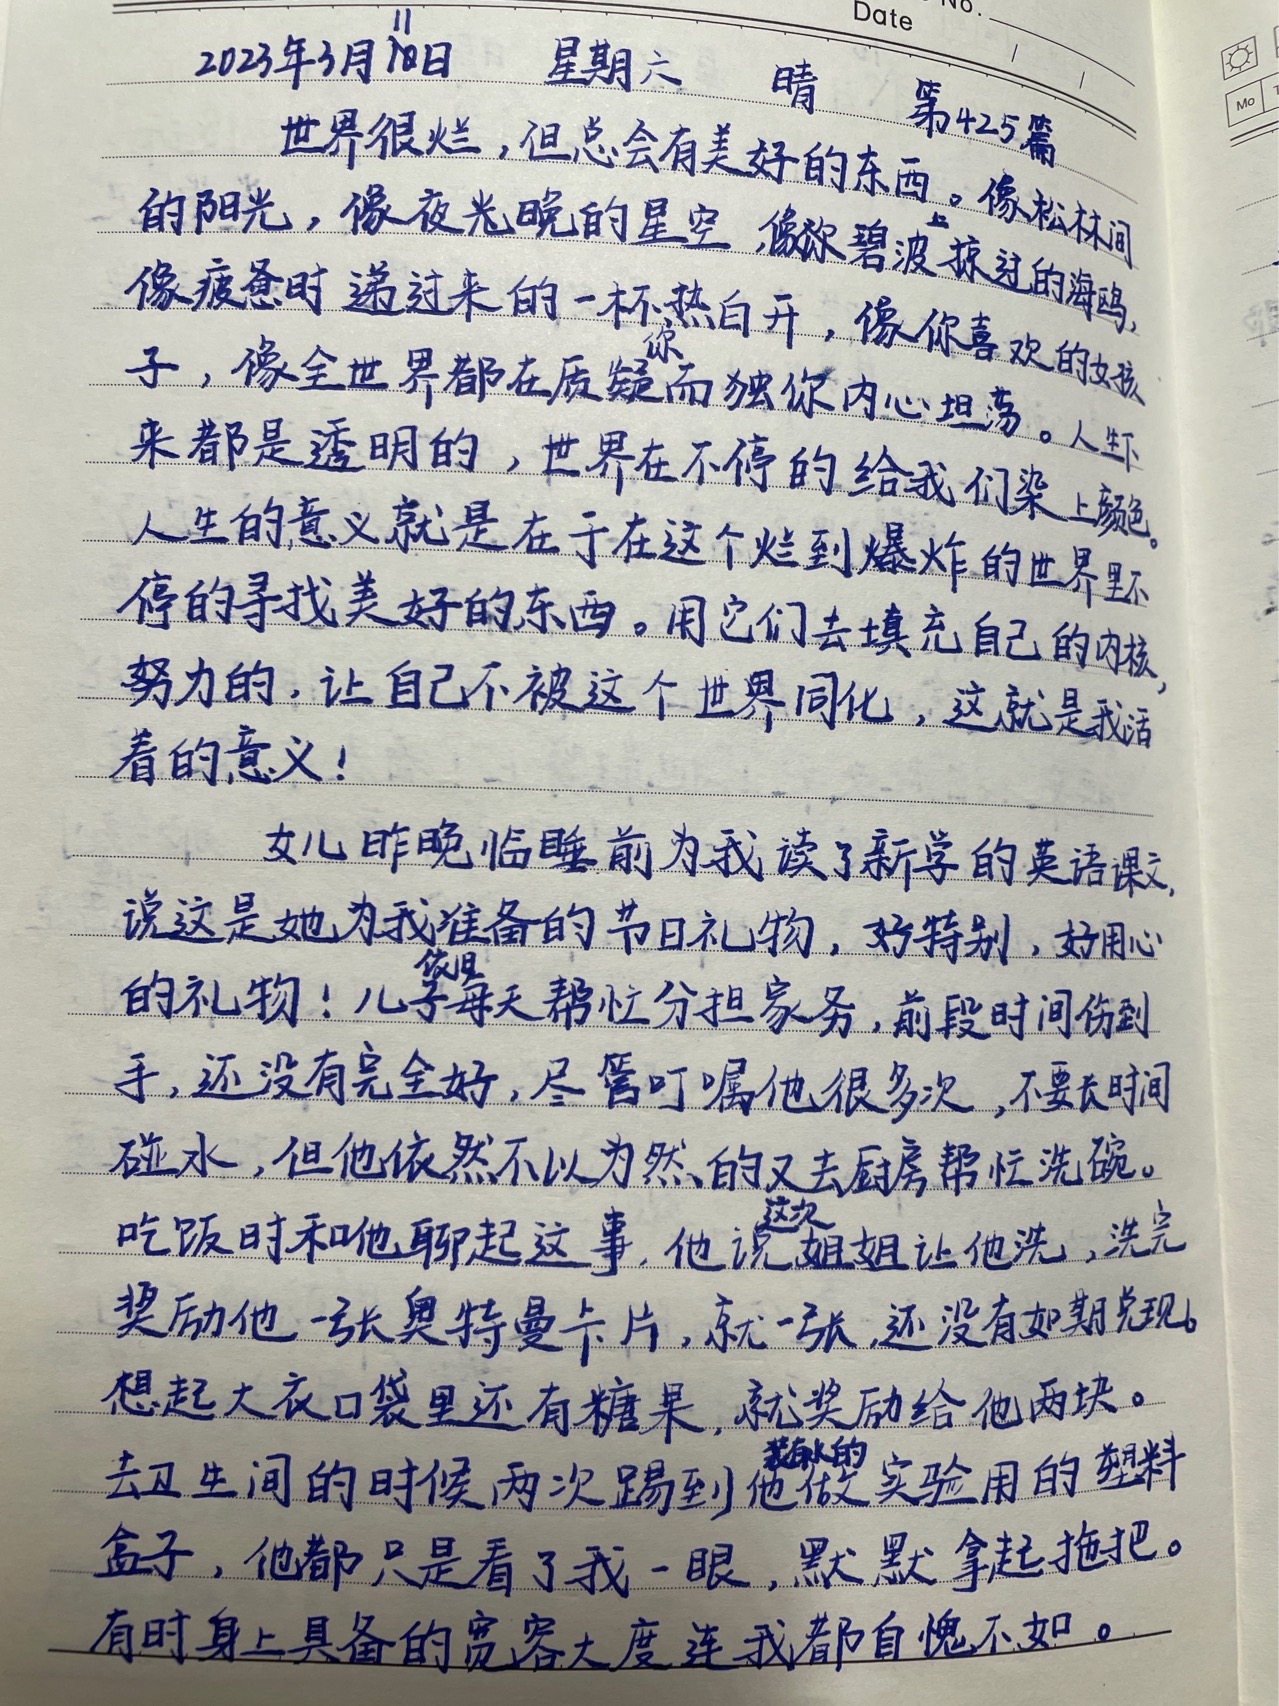 No.
Date
2023年3月11日 星期六 晴 第425篇
世界很烂，但总会有美好的东西。像松林间
的阳光，像夜光晚的星空，像你碧波上掠过的海鸥，
像疲惫时递过来的一杯热白开，像你喜欢的女孩
子，像全世界都在质疑你而独你内心坦荡。人生下
来都是透明的，世界在不停的给我们染上颜色。
人生的意义就是在于在这个烂到爆炸的世界里不
停的寻找美好的东西。用它们去填充自己的内核，
努力的，让自己不被这个世界同化，这就是我活
着的意义！
女儿昨晚临睡前为我读了新学的英语课文，
说这是她为我准备的节日礼物，好特别，好用心
的礼物！儿子依旧每天帮忙分担家务，前段时间伤到
手，还没有完全好，尽管叮嘱他很多次，不要长时间
碰水，但他依然不以为然的又去厨房帮忙洗碗。
吃饭时和他聊起这事，他说这次姐姐让他洗，洗完
奖励他一张奥特曼卡片，就一张，还没有如期兑现。
想起大衣口袋里还有糖果，就奖励给他两块。
去卫生间的时候两次踢到他做装有水的实验用的塑料
盒子，他都只是看了我一眼，默默拿起拖把。
有时身上具备的宽容大度连我都自愧不如。
Mo